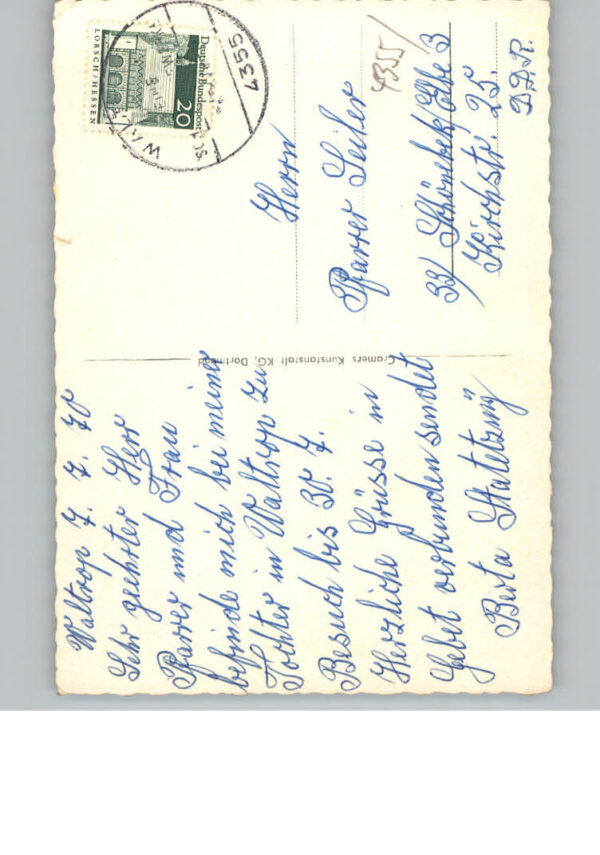 Waltrop 7. 7. 70
Sehr geehrter Herr
Pfarrer und Frau
befinde mich bei meiner
Tochter in Waltrop zu
Besuch bis 30. 7.
Herzliche Grüsse in
Gebet verbunden sendet
Berta
Cramers Kunstanstalt KG, Dortmund
Deutsche Bundespost
20
LORSCH/HESSEN
4355
4355
Herrn
Pfarrer Seiler
33 Schönebek/Elbe 3
Kirchstr. 25.
D.D.R.